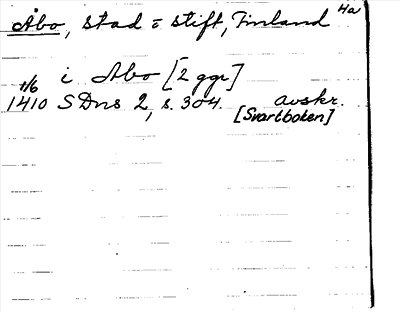 Åbo, stad o stift, Finland 4a
i Abo [2 ggr]
11/6
1410 SDns 2, s. 304. avskr.
[Svartboken]